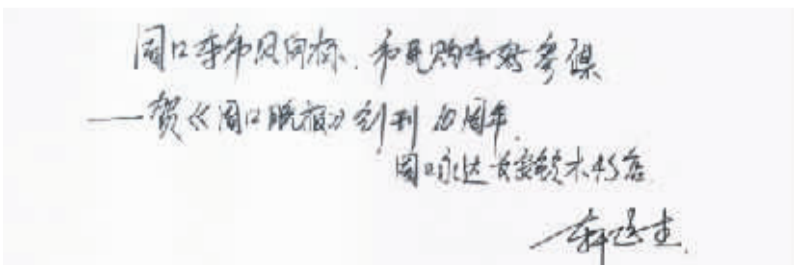 周口车市风向标、市民购车好参谋
——贺《周口晚报》创刊10周年
周口永达长安铃木4S店